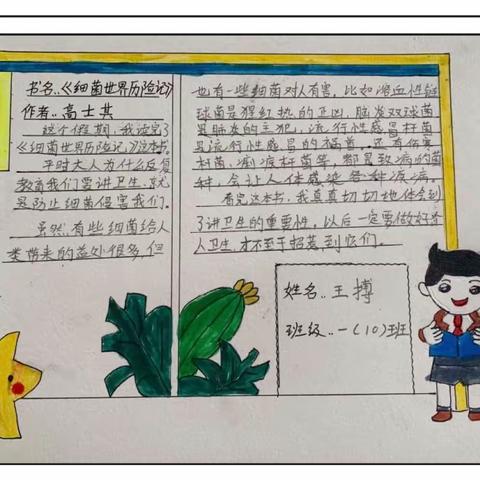 书名:《细菌世界历险记》
作者:高士其
这个假期,我读完了
《细菌世界历险记》这本书。
平时大人为什么反复
教育我们要讲卫生,就
是防止细菌侵害我们。
虽然有些细菌给人
类带来的益处很多,但
也有一些细菌对人有害,比如溶血性链
球菌是猩红热的正凶,脑炎双球菌
是脑炎的主犯,流行性感冒杆菌
是流行性感冒的祸首,还有伤寒
杆菌、痢疾杆菌等,都是致病的菌
种,会让人体感染各种疾病。
看完这本书,我真真切切地体会到
了讲卫生的重要性,以后一定要做好个
人卫生,才不至于招惹到它们。
姓名:王搏
班级:一(10)班